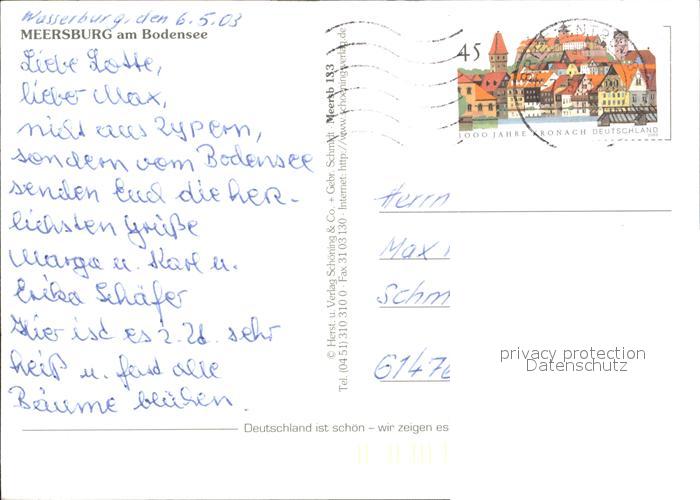 Wasserburg, den 6.5.03
MEERSBURG am Bodensee
Liebe Lotte,
lieber Max,
nicht aus Zypern,
sondern vom Bodensee
senden Euch die herz-
lichsten Grüße
Marga u. Karl u.
Erika Schäfer
Hier ist es z. Zt. sehr
heiß u. fast alle
Bäume blühen.
Deutschland ist schön – wir zeigen es
© Herst. u. Verlag Schöning & Co. + Gebr. Schmidt Meersb 133
Tel. (04 51) 310 310 0 · Fax 31 03 130 · Internet: http://www.schoeningverlag.de
45
1000 JAHRE KRONACH DEUTSCHLAND
Herrn
Max
Schm
61476
privacy protection
Datenschutz